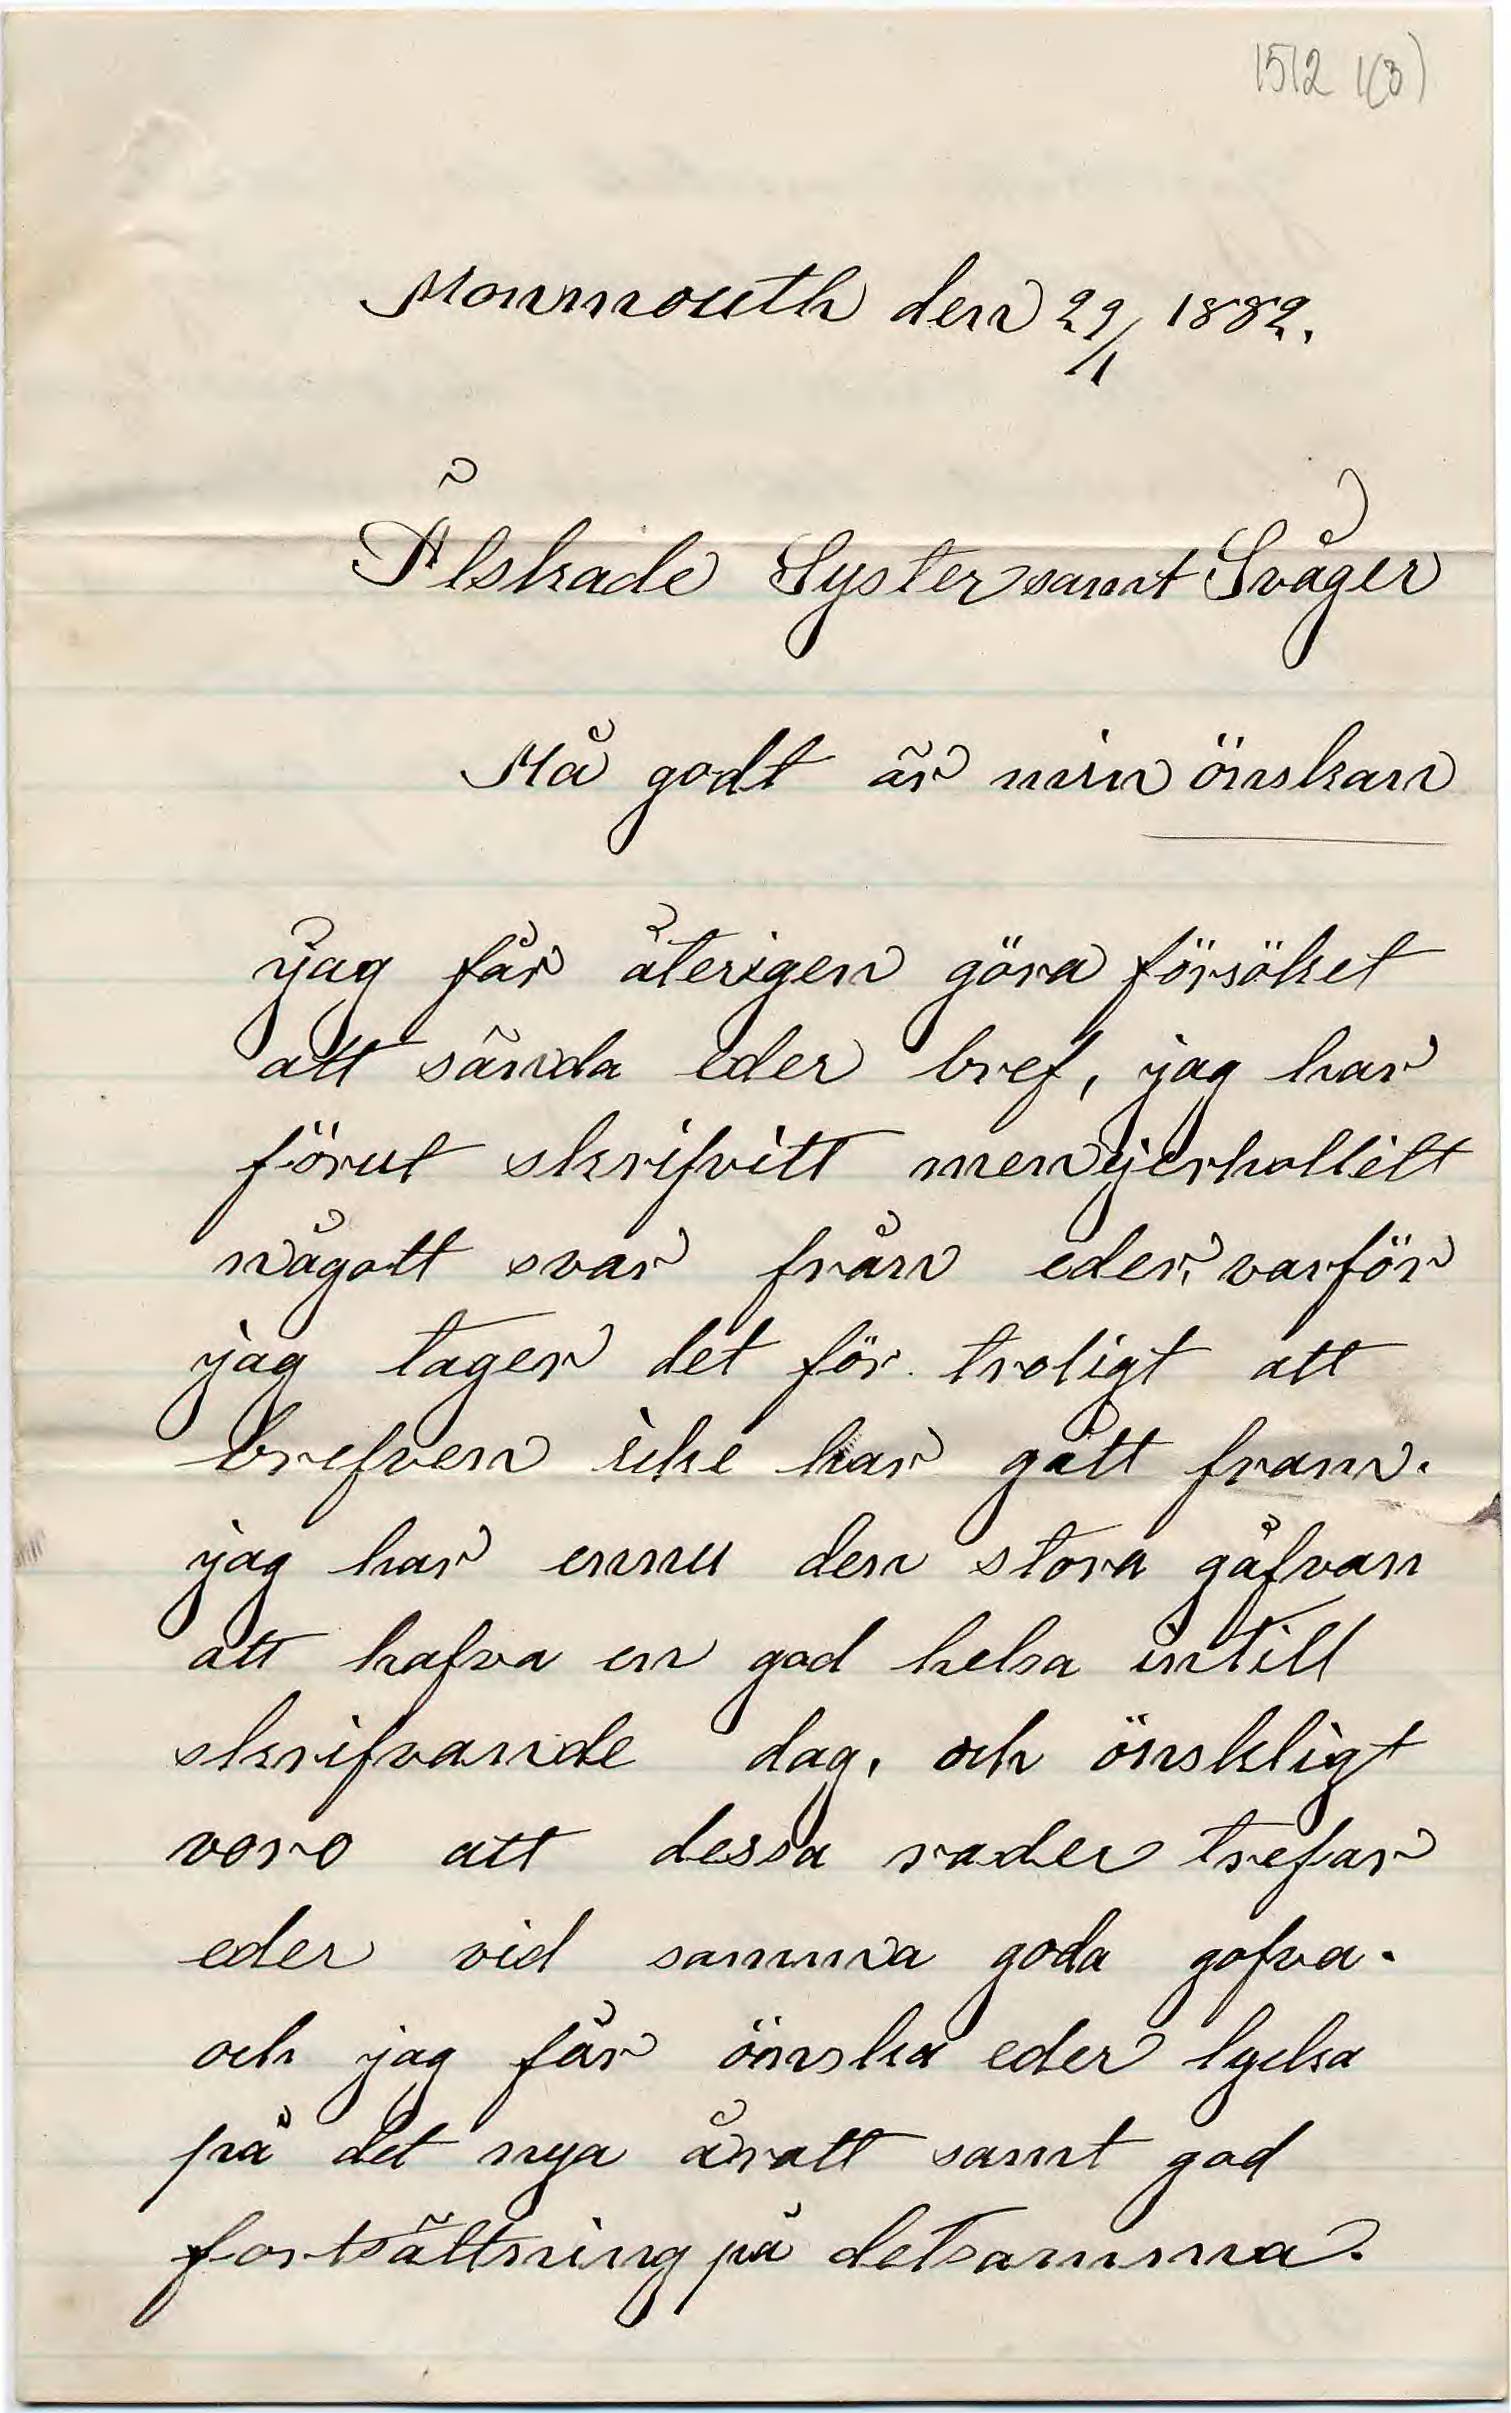 1512 1(3)
Monmouth den 29/1 1882.
Älskade Syster samt Svåger
Må godt är min önskan
jag får återigen göra försöket
att sända eder bref, jag har
förut skrifvitt men ej erhollitt
någott svar från eder, varför
jag tager det för troligt att
brefven icke har gått fram.
jag har ennu den stora gåfvan
att hafva en god helsa intill
skrifvande dag. och önskligt
voro att dessa rader trefar
eder vid samma goda gofva.
och jag får önska eder lycka
på det nya åratt samt god
fortsättning på detsamma.